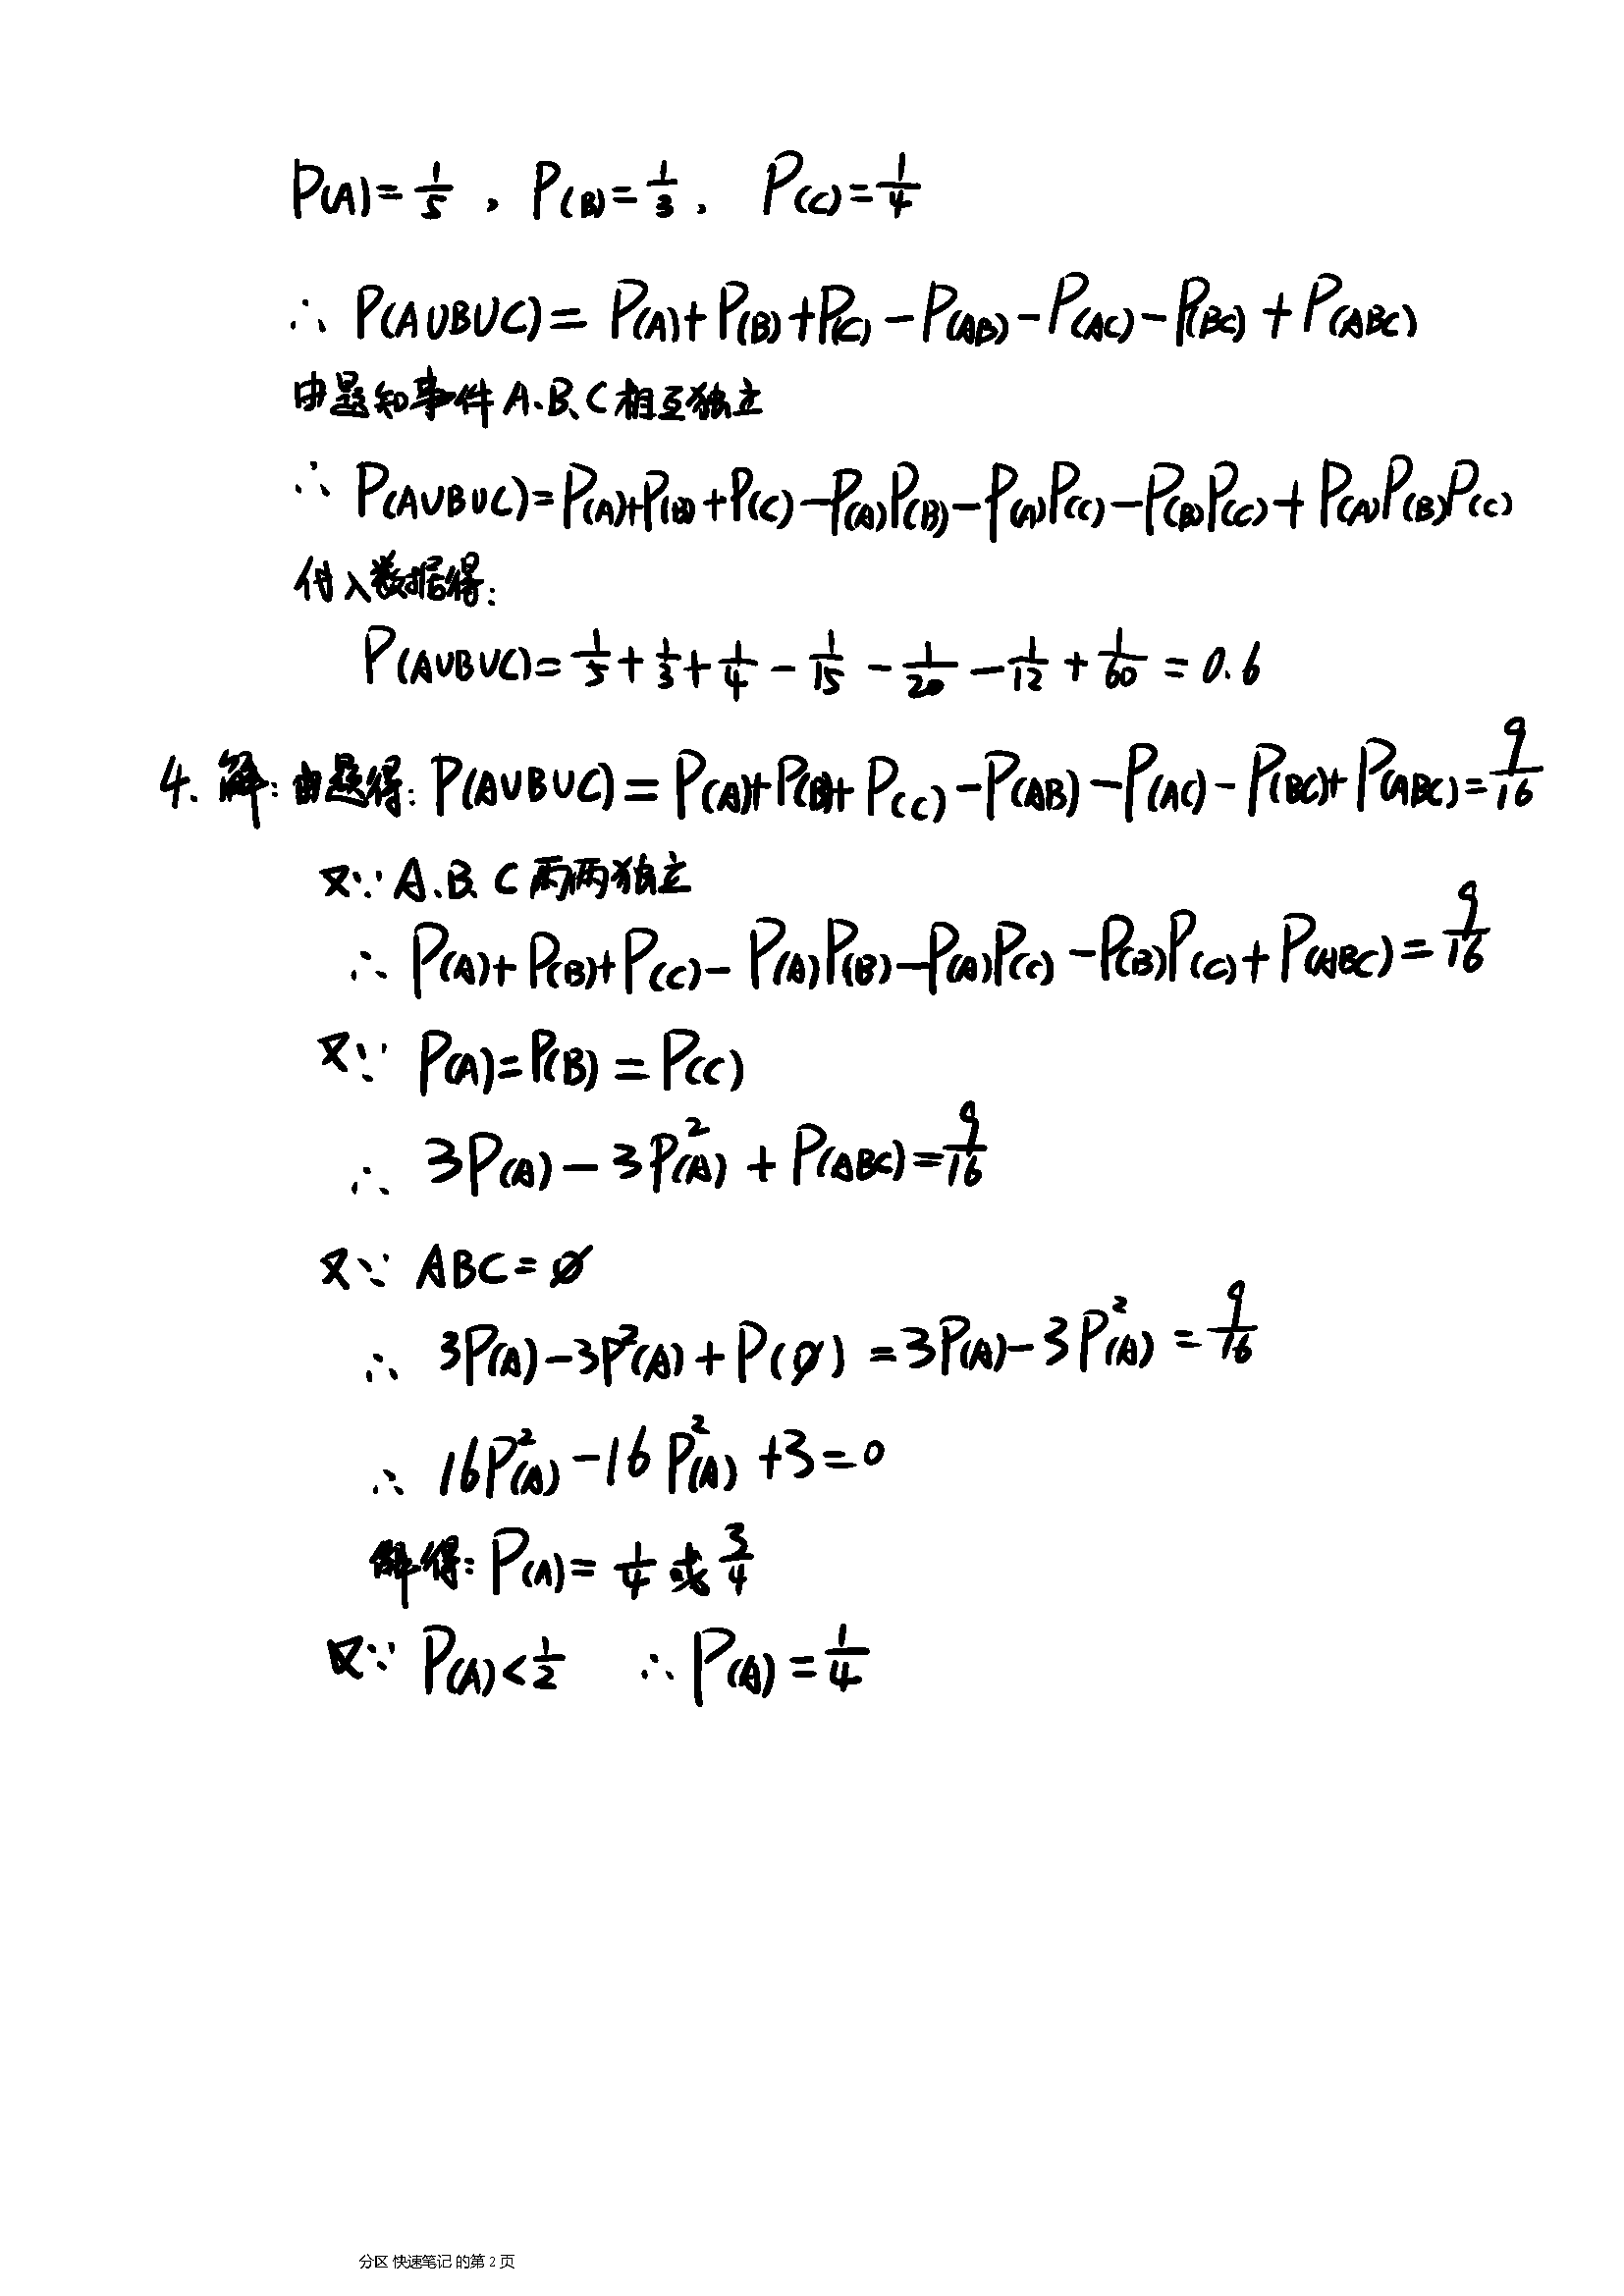 P(A)=1/5 , P(B)=1/3 , P(C)=1/4
∴ P(A∪B∪C)= P(A)+P(B)+P(C)-P(AB)-P(AC)-P(BC)+P(ABC)
由题知事件A.B、C相互独立
∴ P(A∪B∪C)=P(A)+P(B)+P(C)-P(A)P(B)-P(A)P(C)-P(B)P(C)+P(A)P(B)P(C)
代入数据得:
P(A∪B∪C)=1/5+1/3+1/4-1/15-1/20-1/12+1/60=0.6
4.解:由题得:P(A∪B∪C)=P(A)+P(B)+P(C)-P(AB)-P(AC)-P(BC)+P(ABC)=9/16
又∵ A.B、C两两独立
∴ P(A)+P(B)+P(C)-P(A)P(B)-P(A)P(C)-P(B)P(C)+P(ABC)=9/16
又∵ P(A)=P(B)=P(C)
∴ 3P(A)-3P²(A)+P(ABC)=9/16
又∵ ABC=∅
∴ 3P(A)-3P²(A)+P(∅)=3P(A)-3P²(A)=9/16
∴ 16P²(A)-16P²(A)+3=0
解得:P(A)=1/4或3/4
又∵ P(A)<1/2 ∴P(A)=1/4
分区 快速笔记 的第 2 页